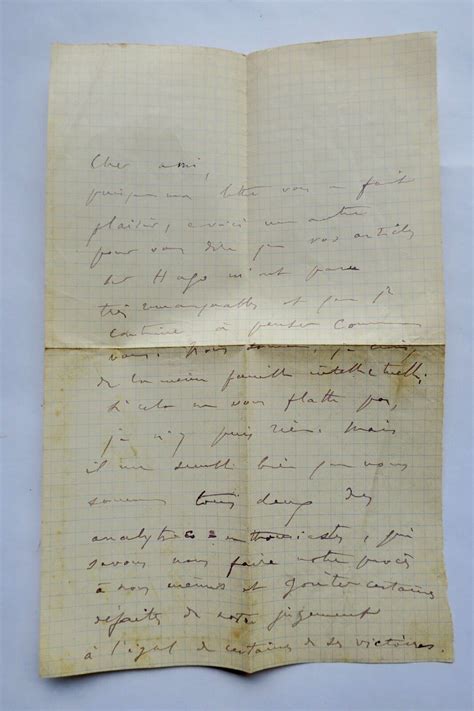 Cher ami,
puisque ma lettre vous a fait
plaisir, en voici une autre
pour vous dire que vos articles
sur Hugo m'ont paru
très remarquables et que je
continue à penser comme
vous. Nous sommes, je crois,
de la même famille intellectuelle,
si cela ne vous flatte pas,
je n'y puis rien. Mais
il me semble bien que nous
sommes tous deux des
analystes enthousiastes, qui
savons nous faire notre procès
à nous mêmes et goûter certaines
défaites de notre jugement
à l'égal de certaines de ses victoires.